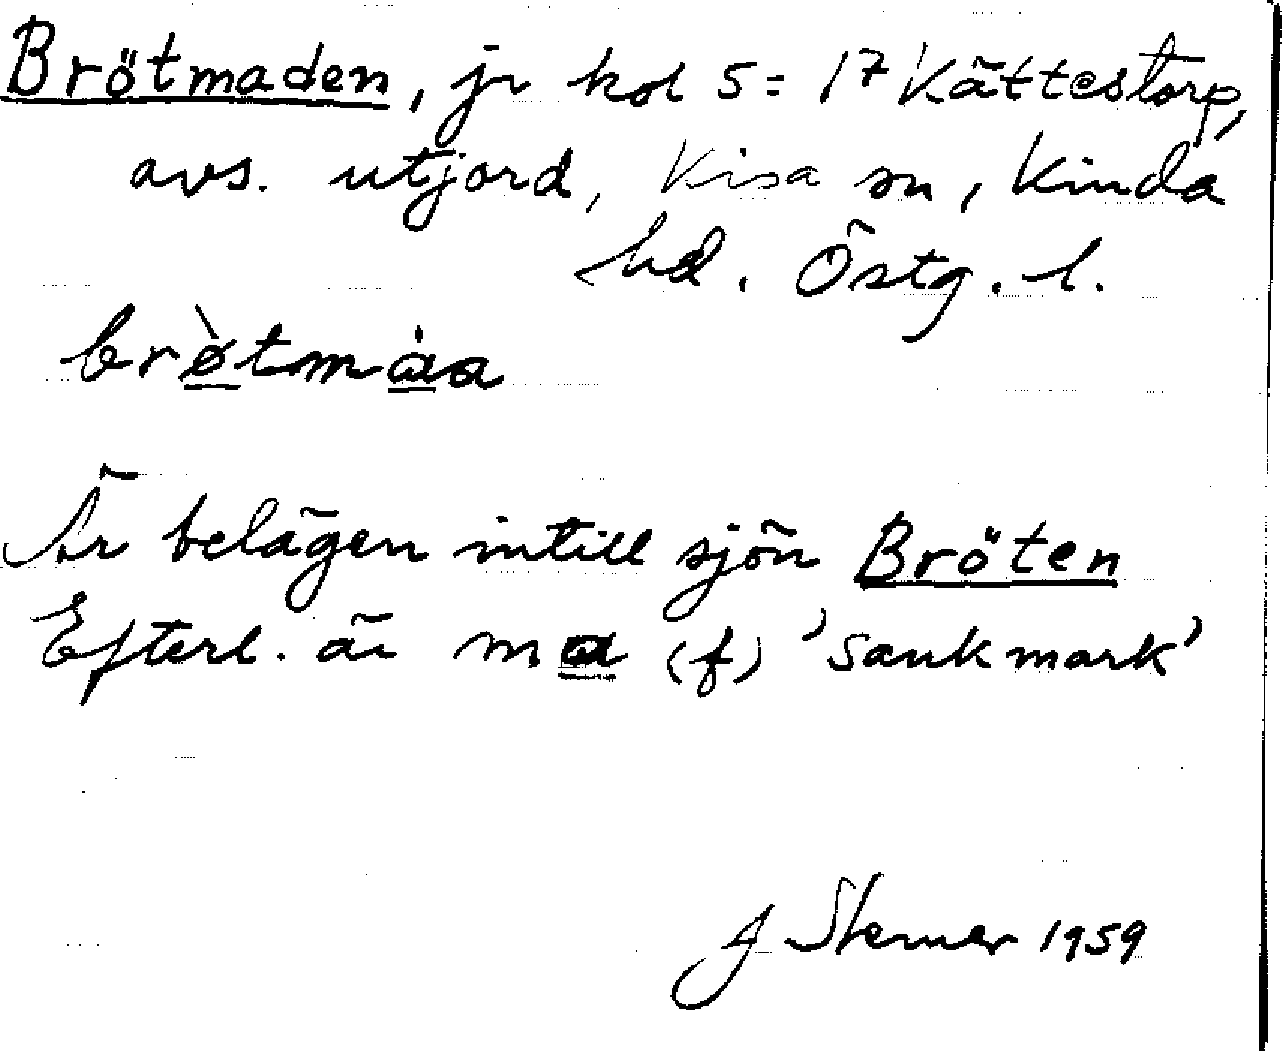 Brötmaden, jr kol 5 = 17 Kättestorp,
avs. utjord, Kisa sn, Kinda
hd. Östg. l.
brø̀tmȧa
Är belägen intill sjön Bröten
Efterl. är ma (f) 'sankmark'
J Sterner 1959